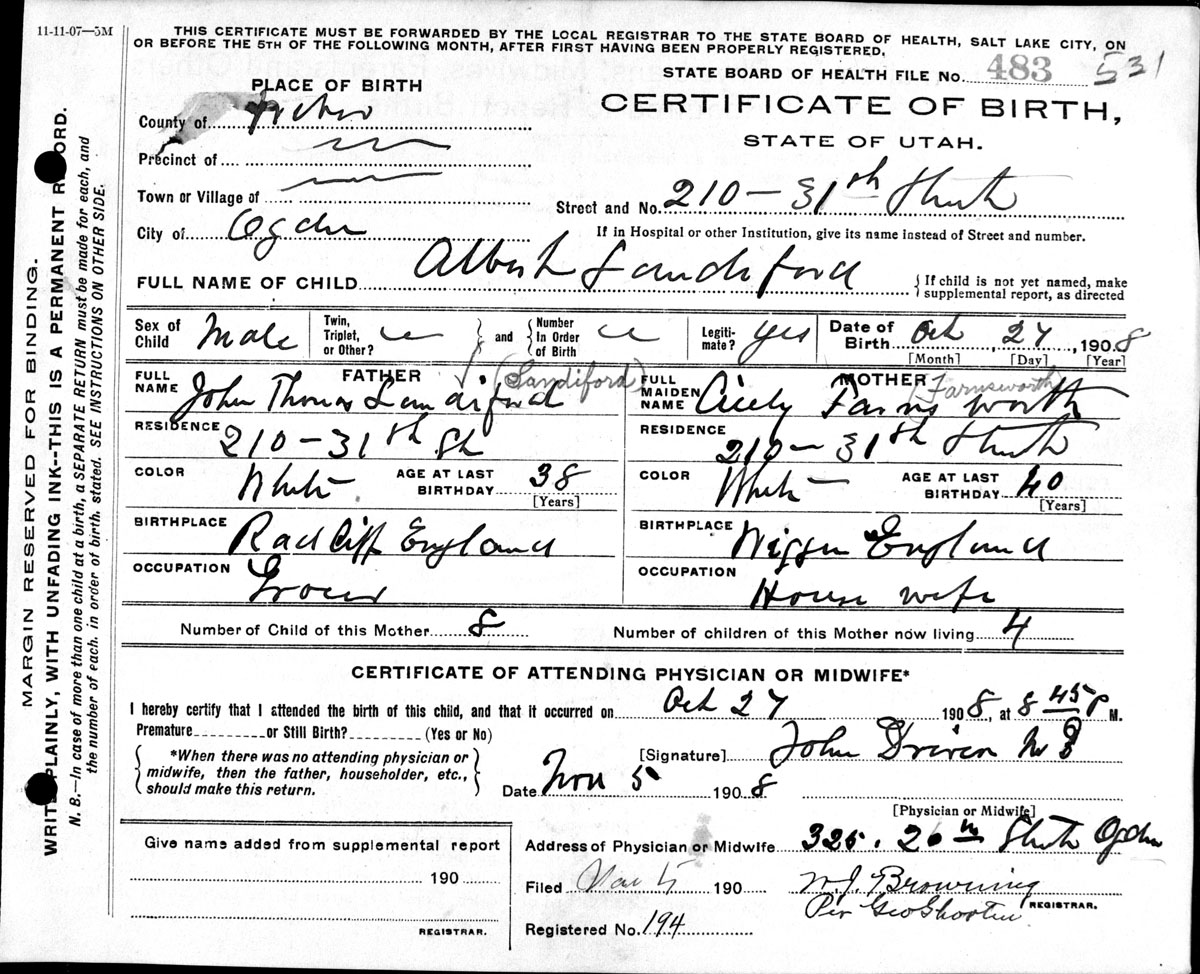 11-11-07—5M
THIS CERTIFICATE MUST BE FORWARDED BY THE LOCAL REGISTRAR TO THE STATE BOARD OF HEALTH, SALT LAKE CITY, ON
OR BEFORE THE 5TH OF THE FOLLOWING MONTH, AFTER FIRST HAVING BEEN PROPERLY REGISTERED.
STATE BOARD OF HEALTH FILE No. 483 531
PLACE OF BIRTH
CERTIFICATE OF BIRTH,
STATE OF UTAH.
County of
Precinct of
Town or Village of
Street and No. 210 — 31th Street
City of Ogden
If in Hospital or other Institution, give its name instead of Street and number.
FULL NAME OF CHILD Albert Sandiford
{ If child is not yet named, make
supplemental report, as directed
Sex of Child Male
Twin, Triplet, or Other?
and
Number In Order of Birth
Legiti- mate? yes
Date of Birth Oct 27, 1908
[Month] [Day] [Year]
FATHER (Sandiford)
MOTHER (Farnsworth)
FULL NAME John Thomas Sandiford
FULL MAIDEN NAME Cicely Farnsworth
RESIDENCE 210 — 31th St
RESIDENCE 210 — 31th Street
COLOR White
AGE AT LAST BIRTHDAY 38 [Years]
COLOR White
AGE AT LAST BIRTHDAY 40 [Years]
BIRTHPLACE Radcliff England
BIRTHPLACE Wiggan England
OCCUPATION Grocer
OCCUPATION House wife
Number of Child of this Mother 8
Number of children of this Mother now living 4
CERTIFICATE OF ATTENDING PHYSICIAN OR MIDWIFE*
I hereby certify that I attended the birth of this child, and that it occurred on Oct 27 1908, at 8 45 P M.
Premature or Still Birth? (Yes or No)
*When there was no attending physician or
midwife, then the father, householder, etc.,
should make this return.
[Signature] John Driver M D
Date Nov 5 1908
[Physician or Midwife]
Address of Physician or Midwife 325. 26th Street Ogden
Give name added from supplemental report
190
REGISTRAR.
Filed Nov 5 190
W. J. Browning
Per Geo Shorten REGISTRAR.
Registered No. 194
MARGIN RESERVED FOR BINDING.
WRITE PLAINLY, WITH UNFADING INK--THIS IS A PERMANENT RECORD.
N. B.—In case of more than one child at a birth, a SEPARATE RETURN must be made for each, and
the number of each, in order of birth, stated. SEE INSTRUCTIONS ON OTHER SIDE.